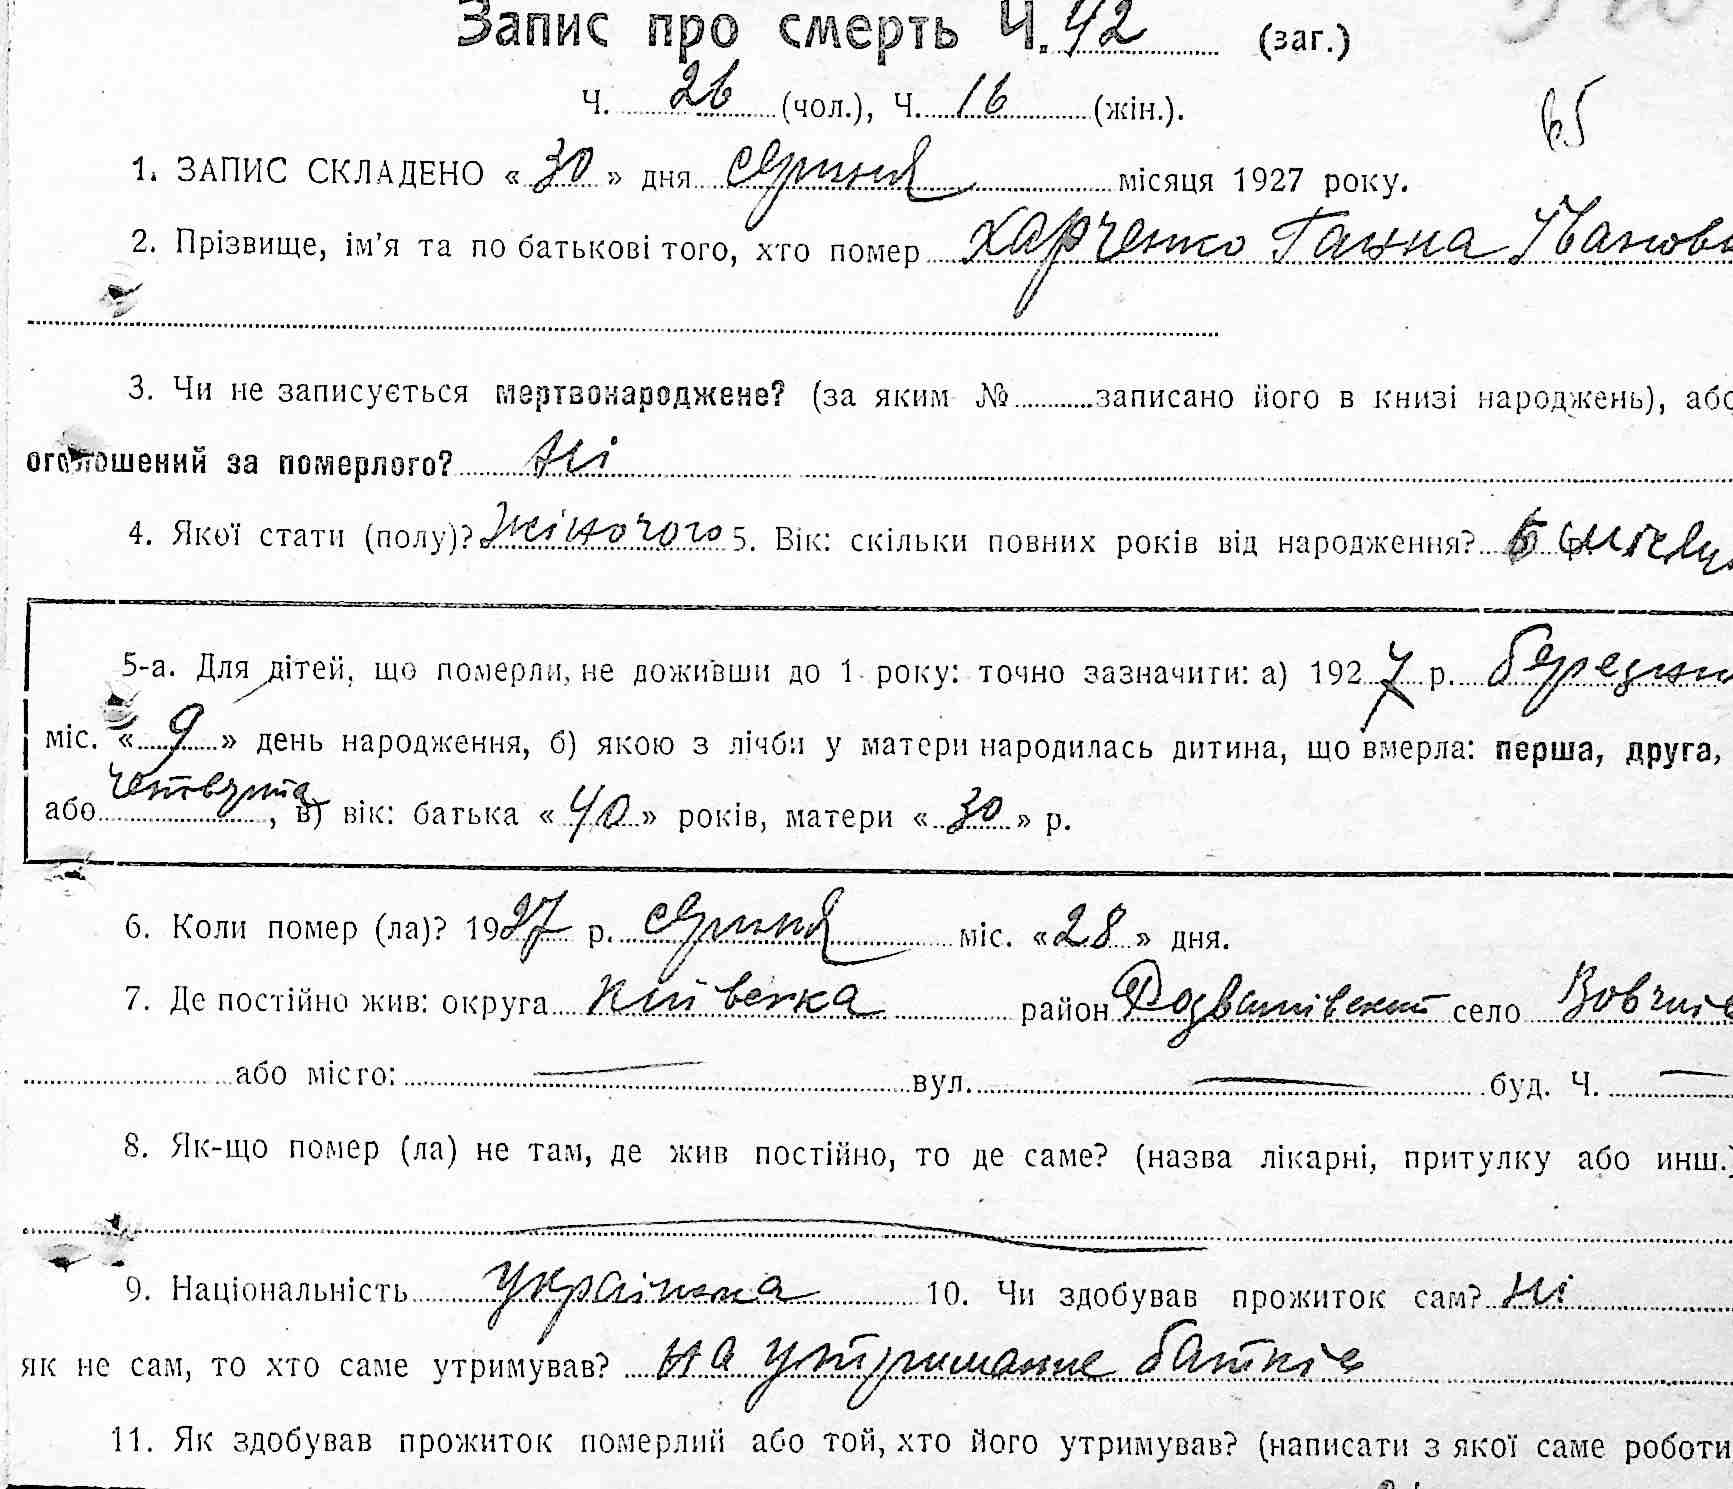 Запис про смерть Ч. 42 (заг.)
Ч. 26 (чол.), Ч. 16 (жін.).
65
1. ЗАПИС СКЛАДЕНО « 30 » дня серпня місяця 1927 року.
2. Прізвище, ім'я та по батькові того, хто помер Харченко Ганна Іванов
3. Чи не записується мертвонароджене? (за яким № записано його в книзі народжень), або
оголошений за померлого? ні
4. Якої стати (полу)? жіночого 5. Вік: скільки повних років від народження? 5
5-а. Для дітей, що померли, не доживши до 1 року: точно зазначити: а) 1927 р. березня
міс. « 9 » день народження, б) якою з лічби у матери народилась дитина, що вмерла: перша, друга,
або четверта, в) вік: батька « 40 » років, матери « 30 » р.
6. Коли помер (ла)? 1927 р. серпня міс. « 28 » дня.
7. Де постійно жив: округа Київська район Розважівський село
або місто: — вул. — буд. Ч. —
8. Як-що помер (ла) не там, де жив постійно, то де саме? (назва лікарні, притулку або инш.)
9. Національність українка 10. Чи здобував прожиток сам? ні
як не сам, то хто саме утримував? на утриманне батьків
11. Як здобував прожиток померлий або той, хто його утримував? (написати з якої саме роботи